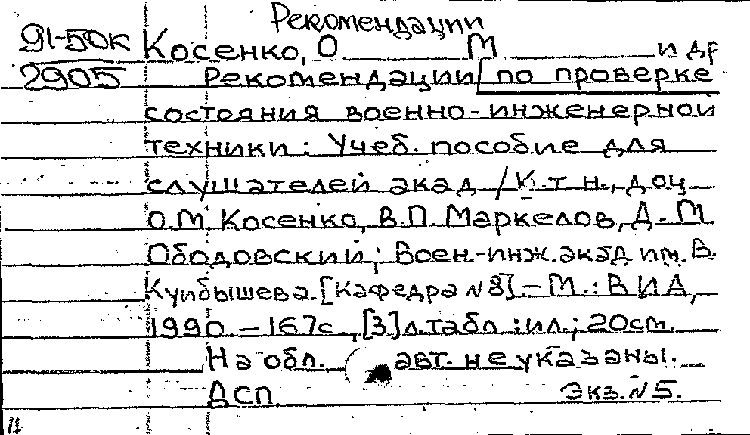 Рекомендации
91-50к Косенко, О М и др
2905 Рекомендации по проверке
состояния военно-инженерной
техники: Учеб. пособие для
слушателей акад / К.т.н., доц
О.М. Косенко, В.П. Маркелов, Д. М.
Ободовский; Воен.-инж. акад им. В.
Куйбышева. [Кафедра №8] - М.: ВИА,
1990. - 167с., [3] л.табл : ил.; 20см.
На обл. авт. не указаны.
ДСП Экз. №5.